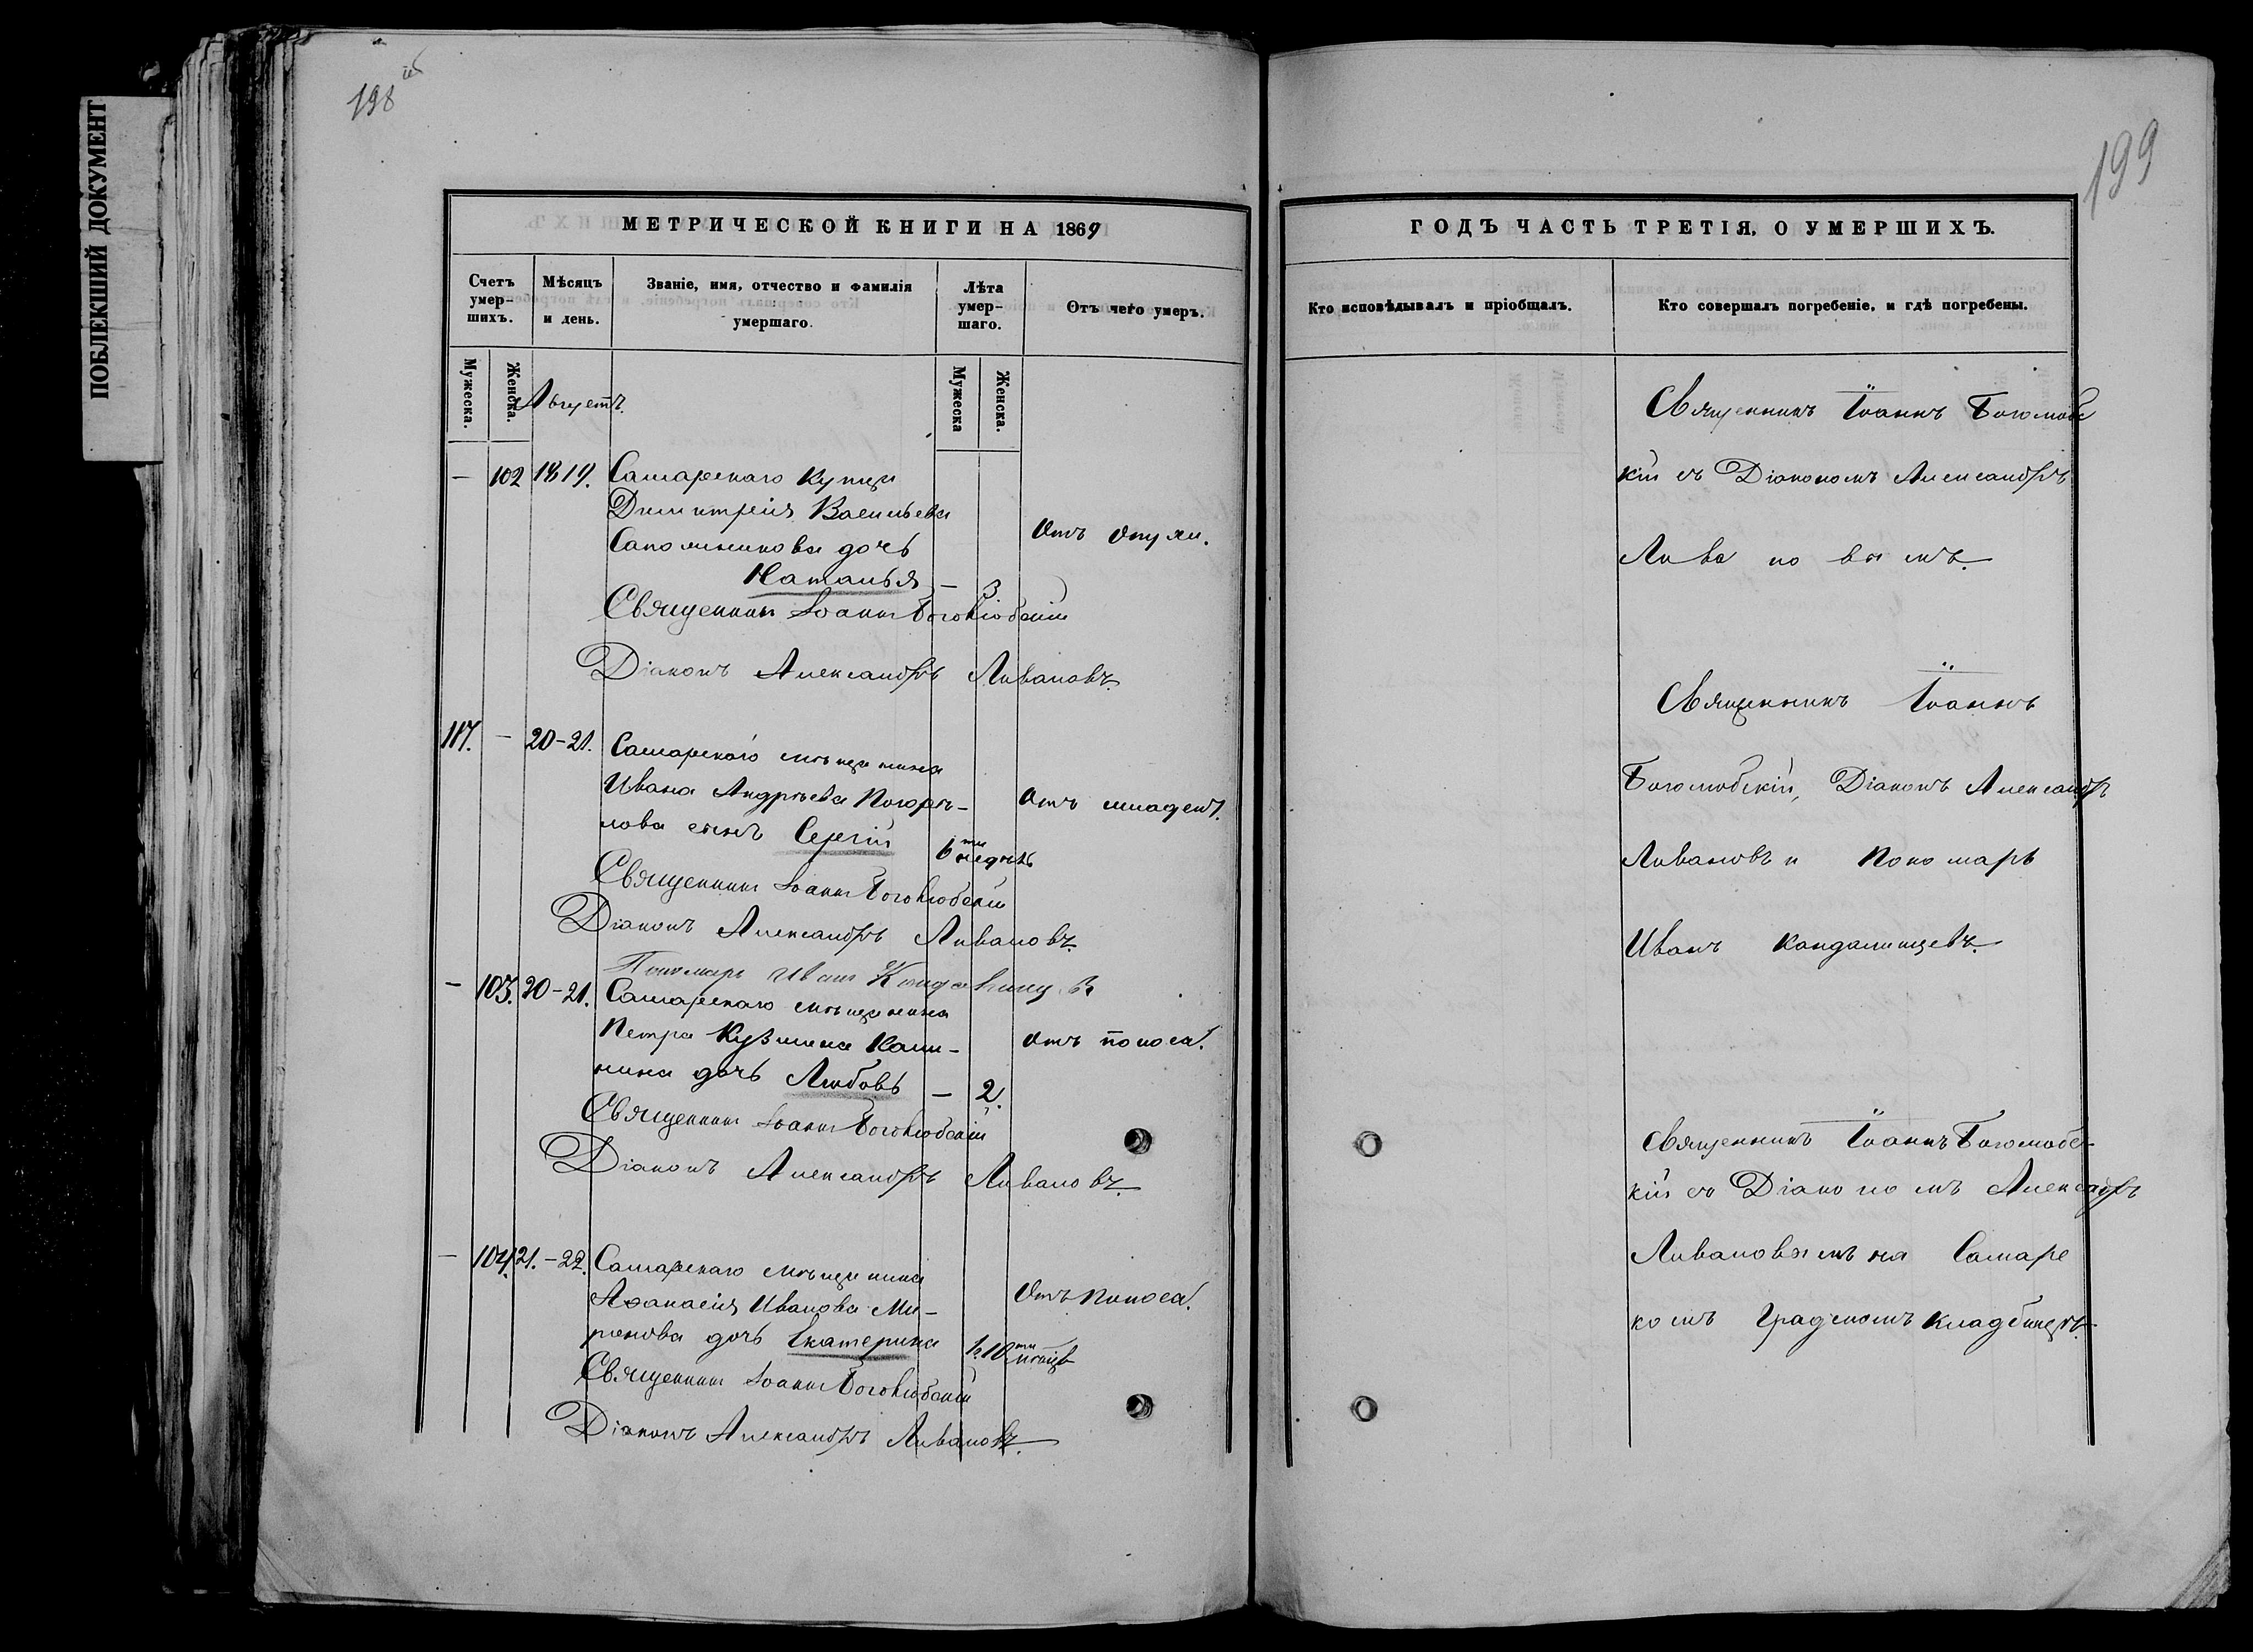 ПОБЛЕКШИЙ ДОКУМЕНТ
198 об
МЕТРИЧЕСКОЙ КНИГИ НА 1869
Счетъ умер-шихъ.
Мѣсяцъ и день.
Званіе, имя, отчество и фамилія умершаго.
Лѣта умер-шаго.
Отъ чего умеръ.
Мужеска.
Женска.
Мужеска
Женска.
Августъ.
— 102 18 19. Самарскаго купца
Димитрія Васильева
Сапожникова дочь
Отъ опухи.
Наталья — 3
Священникъ Іоаннъ Боголюбскій
Діаконъ Александръ Ливановъ.
117. — 20-21. Самарскаго мѣщанина
Ивана Андрѣева Погорѣ-
Отъ младен.
лова сынъ Сергій 6ти недѣль
Священникъ Іоаннъ Боголюбскій
Діаконъ Александръ Ливановъ.
Пономарь Иванъ Кандалинцевъ
— 103. 20-21. Самарскаго мѣщанина
Петра Кузмина Кали-
отъ поноса.
нина дочь Любовь — 2.
Священникъ Іоаннъ Боголюбскій
Діаконъ Александръ Ливановъ.
— 104. 21.-22. Самарскаго мѣщанина
Аѳанасія Иванова Ми-
Отъ поноса.
ронова дочь Екатерина 1. 10ти мѣсяц.
Священникъ Іоаннъ Боголюбскій
Діаконъ Александръ Ливановъ.
199
ГОДЪ ЧАСТЬ ТРЕТІЯ, О УМЕРШИХЪ.
Кто исповѣдывалъ и пріобщалъ.
Кто совершалъ погребеніе, и гдѣ погребены.
Священникъ Іоаннъ Боголюбс
кій съ Діакономъ Александръ
Ливановымъ.
Священникъ Іоаннъ
Боголюбскій, Діаконъ Александръ
Ливановъ и Пономарь
Иванъ Кандалинцевъ.
Священникъ Іоаннъ Боголюбс-
кій съ Діакономъ Александръ
Ливановымъ на Самарс
комъ Градскомъ кладбищѣ.